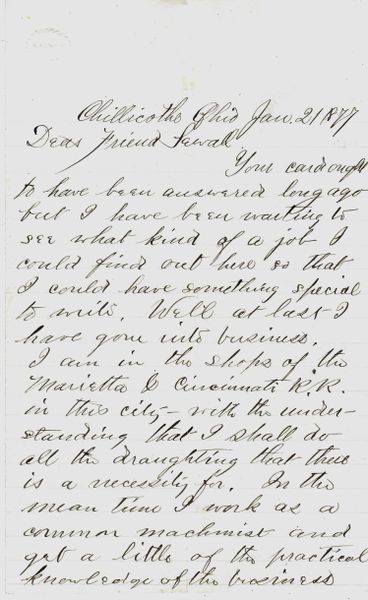 Chillicothe Ohio Jan. 21 1877
Dear Friend Sewall
Your card ought
to have been answered long ago
but I have been waiting to
see what kind of a job I
could find out here so that
I could have something special
to write. Well at last I
have gone into business.
I am in the shops of the
Marietta & Cincinnati R.R.
in this city – with the under-
standing that I shall do
all the draughting that there
is a necessity for. In the
mean time I work as a
common machinist and
get a little of the practical
knowledge of the business